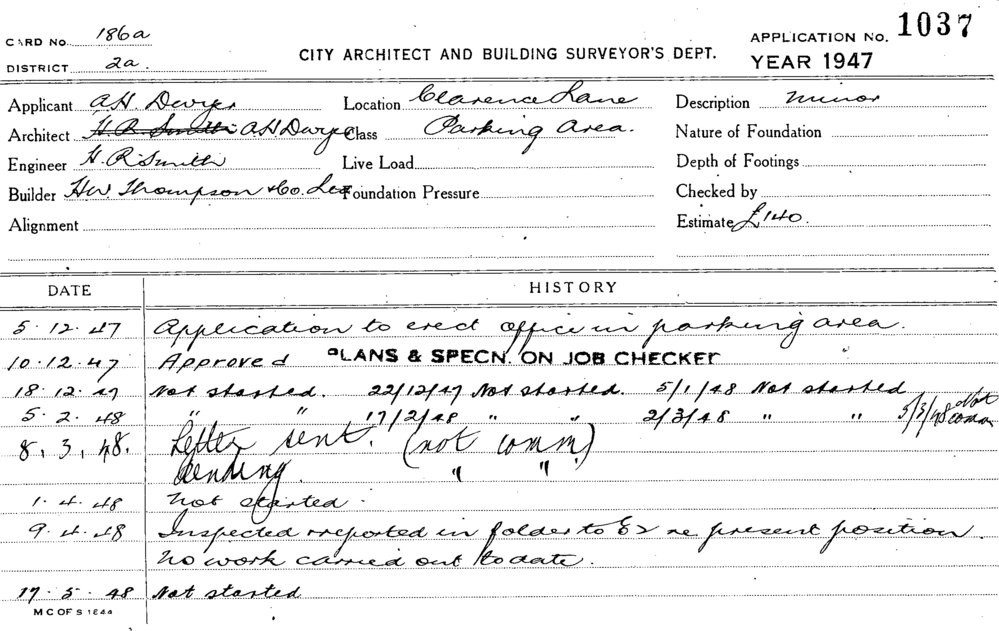 CARD No. 186a
DISTRICT 2a.
CITY ARCHITECT AND BUILDING SURVEYOR'S DEPT.
APPLICATION No. 1037
YEAR 1947
Applicant A.H. Dwyer Location Clarence Lane Description minor
Architect H R Smith A H Dwyer Class Parking Area. Nature of Foundation
Engineer H. R. Smith Live Load Depth of Footings
Builder H W. Thompson & Co. Foundation Pressure Checked by
Alignment Estimate £140.
DATE HISTORY
5.12.47 Application to erect office in parking area.
10.12.47 Approved PLANS & SPECN. ON JOB CHECKED
18.12.47 Not started. 22/12/47 Not started. 5/1/48 Not started
5.2.48 " " 17/2/48 " " 2/3/48 " " 5/3/48 Not comm.
8.3.48. Letter sent. (not comm.)
Pending. " "
1.4.48 Not started.
9.4.48 Inspected & reported in folder to re present position.
No work carried out to date.
17.5.48 Not started
M C OF S 1844